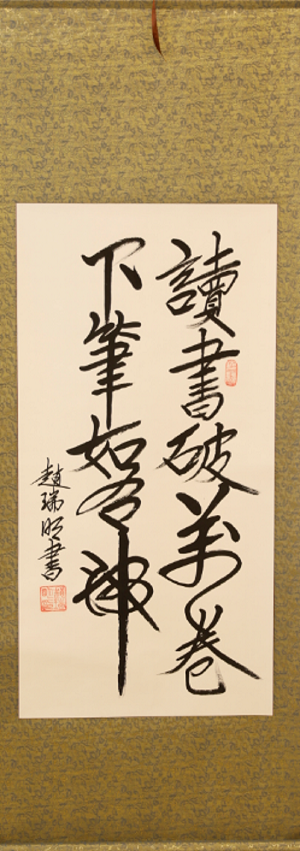 讀書破萬卷
下筆如有神
趙瑞明書